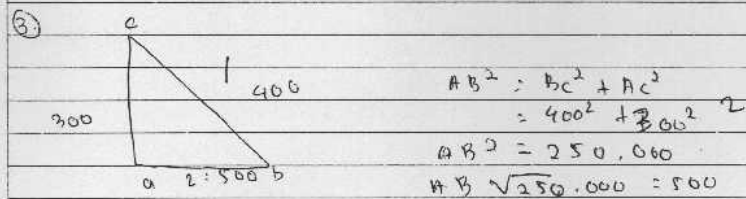 3.
c
400
300
a 2 : 500 b
AB² : Bc² + Ac²
= 400² + 300² 2
AB² = 250.000
AB √250.000 = 500